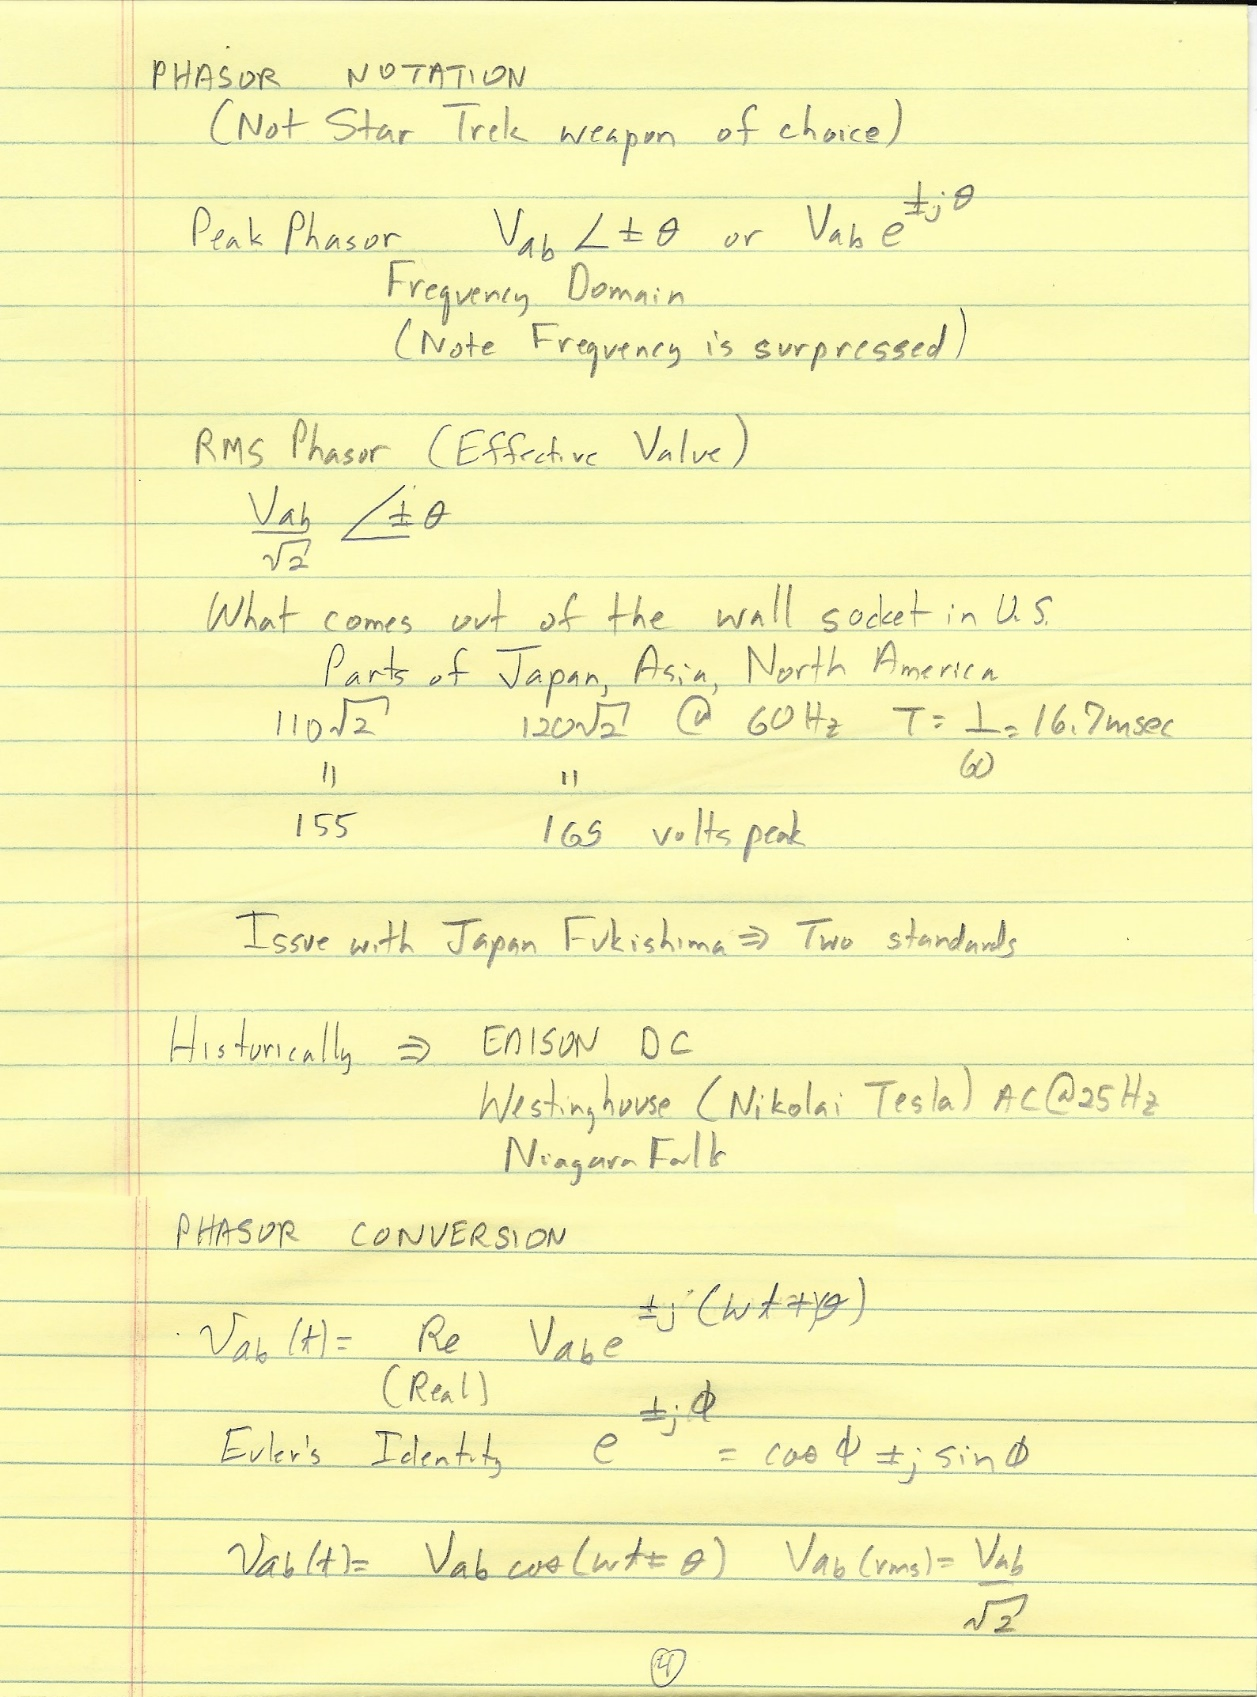 PHASOR NOTATION
(Not Star Trek weapon of choice)
Peak Phasor Vab ∠±θ or Vab e^±jθ
Frequency Domain
(Note Frequency is surpressed)
RMS Phasor (Effective Value)
Vab/√2 ∠±θ
What comes out of the wall socket in U.S.
Parts of Japan, Asia, North America
110√2 120√2 @ 60Hz T = 1/60 = 16.7msec
" "
155 169 volts peak
Issue with Japan Fukishima ⇒ Two standards
Historically ⇒ EDISON DC
Westinghouse (Nikolai Tesla) AC@25Hz
Niagara Falls
PHASOR CONVERSION
Vab(t) = Re Vab e^±j(wt+θ)
(Real)
Euler's Identity e^±jϕ = cos ϕ ±j sin ϕ
Vab(t) = Vab cos(wt ± θ) Vab(rms) = Vab/√2
4